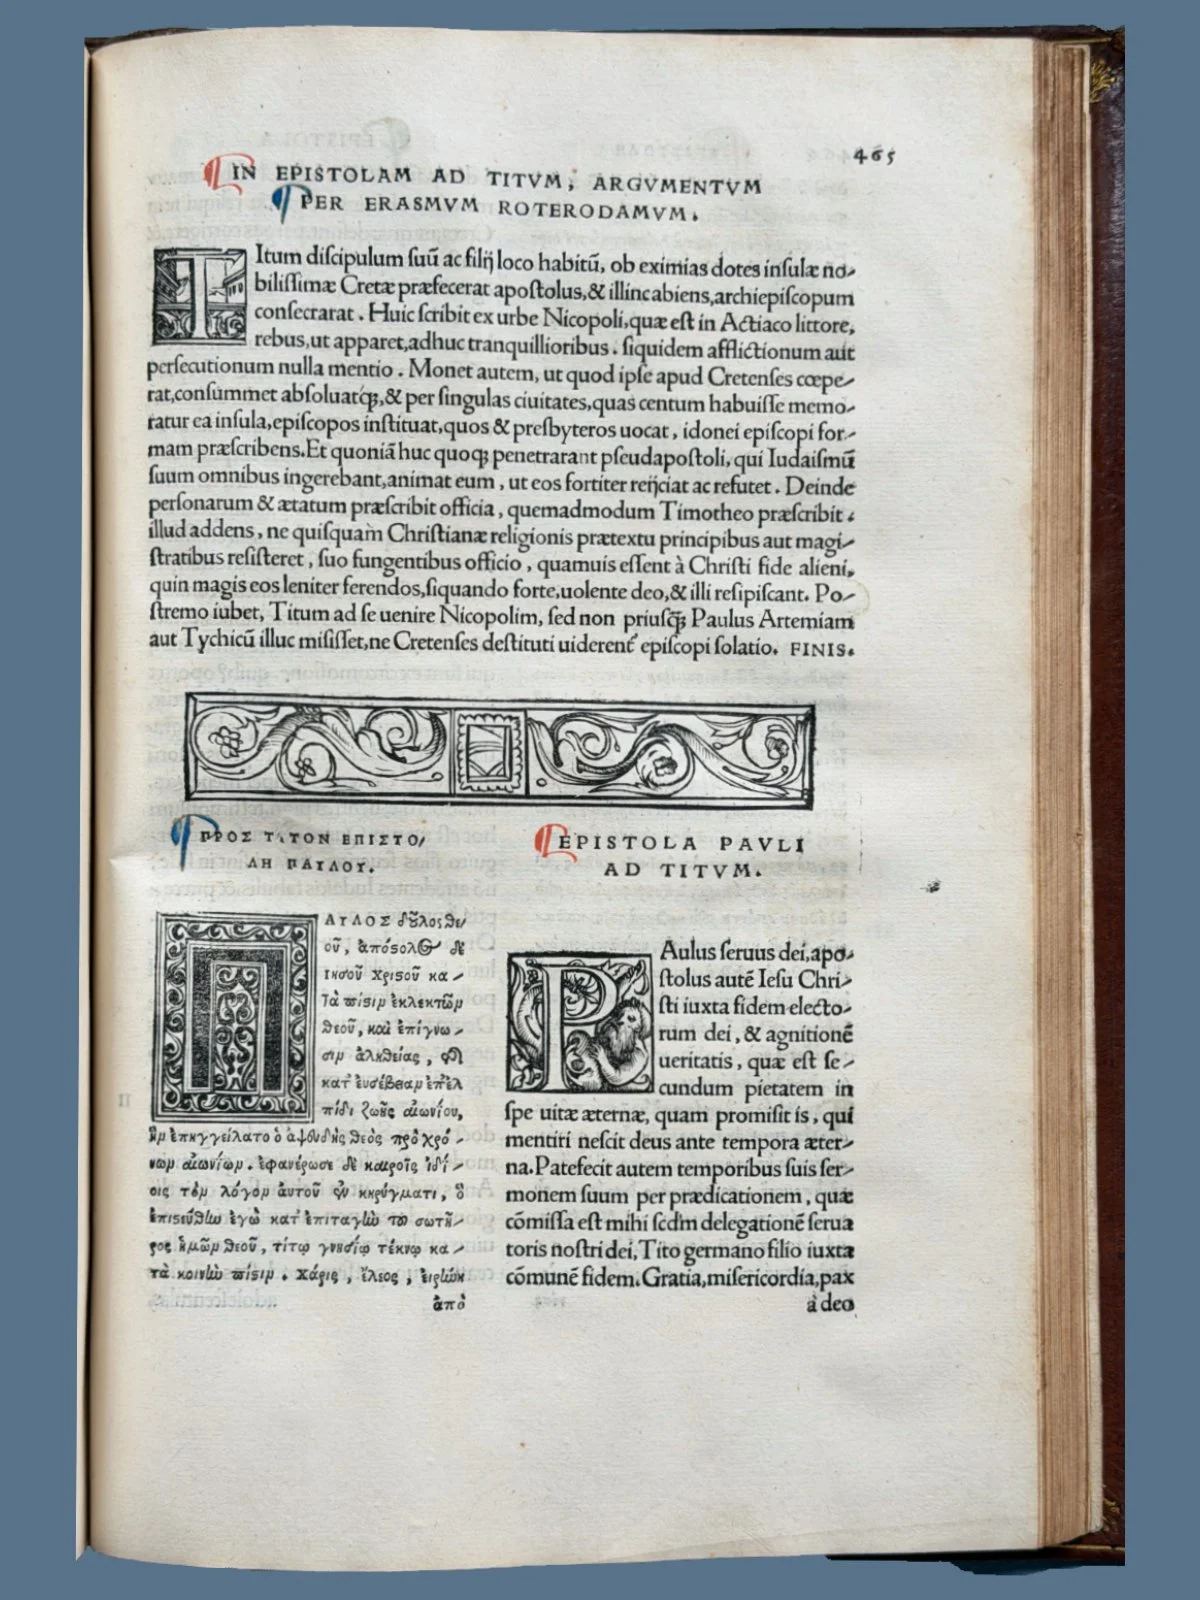 465
IN EPISTOLAM AD TITVM, ARGVMENTVM
PER ERASMVM ROTERODAMVM.
TItum diſcipulum ſuũ ac filij loco habitũ, ob eximias dotes inſulæ no-
biliſſimæ Cretæ præfecerat apoſtolus,& illinc abiens,archiepiſcopum
conſecrarat. Huic ſcribit ex urbe Nicopoli,quæ eſt in Actiaco littore,
rebus,ut apparet,adhuc tranquillioribus. ſiquidem afflictionum aut
perſecutionum nulla mentio. Monet autem, ut quod ipſe apud Cretenſes cœpe-
rat,conſummet abſoluatq́;,& per ſingulas ciuitates,quas centum habuiſſe memo-
ratur ea inſula,epiſcopos inſtituat,quos & preſbyteros uocat, idonei epiſcopi for-
mam præſcribens.Et quoniã huc quoq; penetrarant pſeudapoſtoli, qui Iudaiſmũ
ſuum omnibus ingerebant,animat eum, ut eos fortiter reijciat ac refutet. Deinde
perſonarum & ætatum præſcribit officia, quemadmodum Timotheo præſcribit.
illud addens, ne quiſquam Chriſtianæ religionis prætextu principibus aut magi-
ſtratibus reſiſteret, ſuo fungentibus officio, quamuis eſſent à Chriſti fide alieni,
quin magis eos leniter ferendos,ſiquando forte,uolente deo,& illi reſipiſcant. Po-
ſtremo iubet, Titum ad ſe uenire Nicopolim, ſed non priuſq̃; Paulus Artemiam
aut Tychicũ illuc miſiſſet,ne Cretenſes deſtituti uiderent᷑ epiſcopi ſolatio. FINIS.
ΠΡΟΣ ΤΙΤΟΝ ΕΠΙΣΤΟ/
ΛΗ ΠΑΥΛΟΥ.
ΠΑΥΛΟΣ δοῦλος θε/
οῦ, ἀπόστολος δὲ
ἰησοῦ χριστοῦ κα-
τὰ πίστιν ἐκλεκτῶν
θεοῦ, καὶ ἐπίγνω-
σιν ἀληθείας, τῆς
κατ᾽ ἐυσέβειαν ἐπ᾽ἐλ
πίδι ζωῆς αἰωνίου,
ἣν ἐπηγγείλατο ὁ ἀψευδὴς θεὸς πρὸ χρό-
νων αἰωνίων. ἐφανέρωσε δὲ καιροῖς ἰδί-
οις τὸν λόγον ἁυτοῦ ἐν κηρύγματι, ὃ
ἐπιστεύθην ἐγὼ κατ᾽ ἐπιταγὴν τοῦ σωτῆ-
ρος ἡμῶν θεοῦ, τίτῳ γνησίῳ τέκνῳ κα-
τὰ κοινὴν πίστιν. χάρις, ἔλεος, ἐιρήνη
ἀπὸ
EPISTOLA PAVLI
AD TITVM.
PAulus ſeruus dei,apo-
ſtolus autẽ Ieſu Chri-
ſti iuxta fidem electo-
rum dei, & agnitionẽ
ueritatis, quæ eſt ſe-
cundum pietatem in
ſpe uitæ æternæ, quam promiſit is, qui
mentiri neſcit deus ante tempora æter-
na.Patefecit autem temporibus ſuis ſer-
monem ſuum per prædicationem, quæ
cõmiſſa eſt mihi ſcd̃m delegationẽ ſerua
toris noſtri dei, Tito germano filio iuxta
cõmunẽ fidem. Gratia,miſericordia,pax
à deo